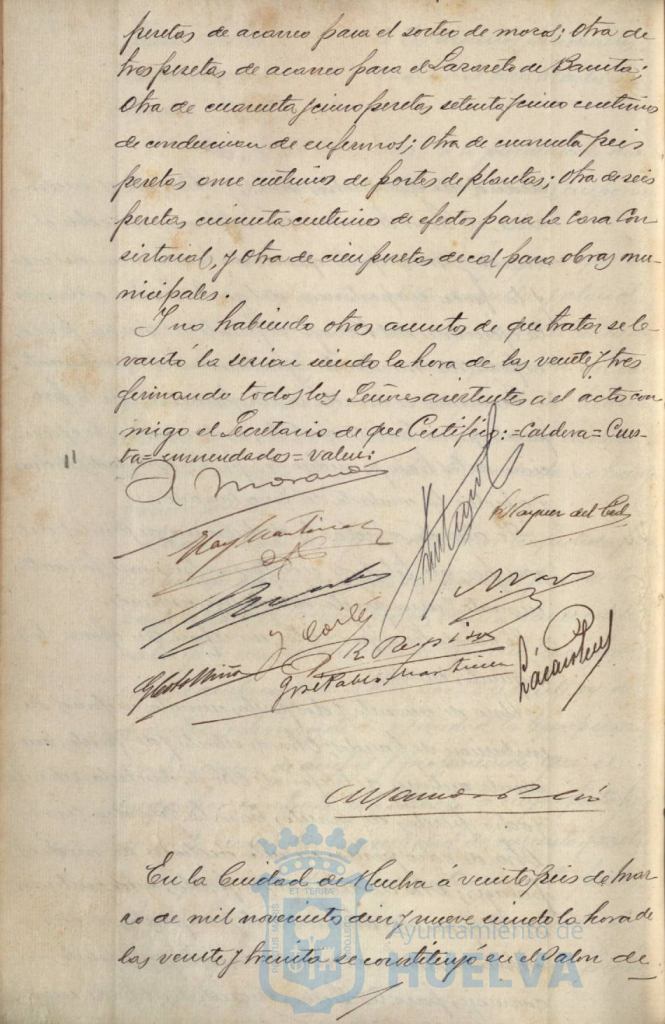 pesetas de acarreo para el sorteo de mozos; otra de
tres pesetas de acarreo para el Lazareto de Banita;
otra de cuarenta y cinco pesetas setenta y cinco centimos
de conduccion de enfermos; otra de cuarenta y seis
pesetas once centimos de portes de plantas; otra de seis
pesetas cincuenta centimos de efectos para la Casa Con
sistorial, y otra de cien pesetas de cal para obras mu-
nicipales.
Y no habiendo otros asuntos de que tratar se le
vantó la sesion siendo la hora de las veinte y tres
firmando todos los Señores asistentes a el acto con
migo el Secretario de que Certifico: = Caldera = Cues-
ta = enmendados = valen:
A Morano
J Coilé
R Rapisa
José Pablo Martinez
En la Ciudad de Huelva á veinte y seis de mar
zo de mil novecientos diez y nueve siendo la hora de
las veinte y treinta se constituyó en el Salon de
ET TERRA
Ayuntamiento de
HUELVA